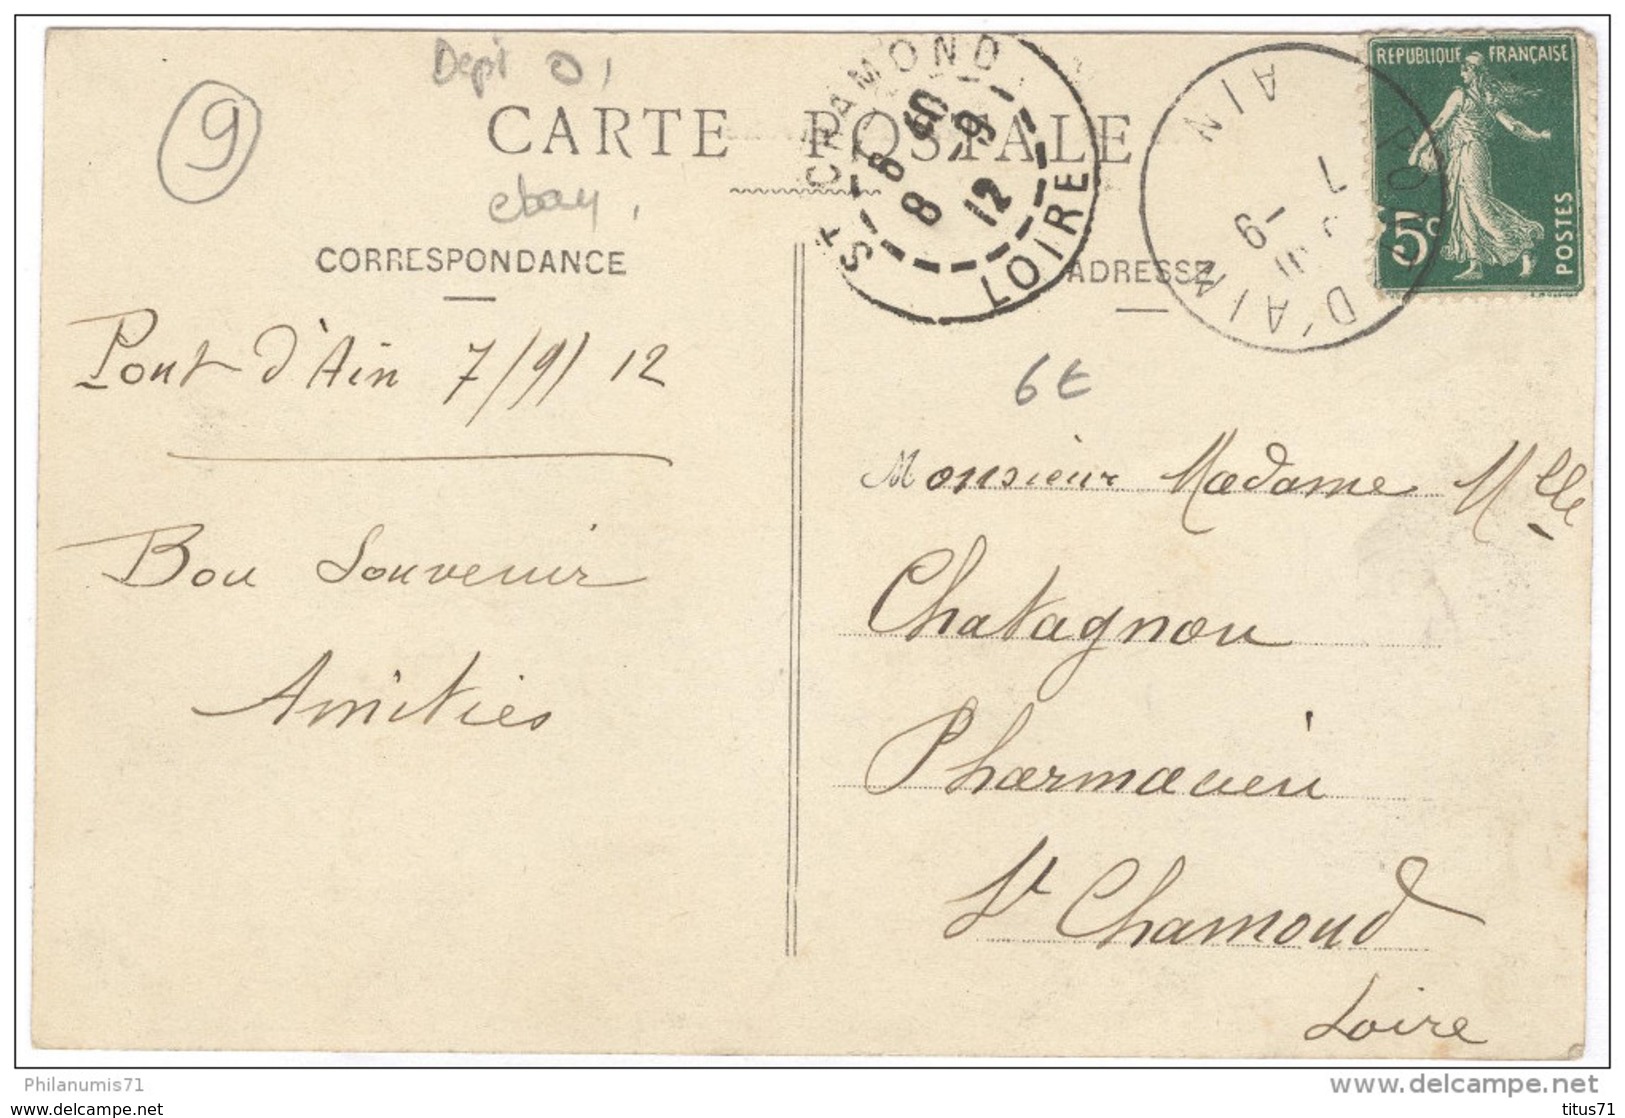 Dept 01
9
CARTE POSTALE
ebay
CORRESPONDANCE
ADRESSE
ST CHAMOND
LOIRE
8 -9
12
D'AIN
AIN
7 -9
REPUBLIQUE FRANÇAISE
5c
POSTES
Pont d'Ain 7/9/12
Bon Souvenir
Amitiés
6€
Monsieur Madame Mlle
Chatagnon
Pharmacien
St Chamond
Loire
Philanumis71
www.delcampe.net
www.delcampe.com
titus71